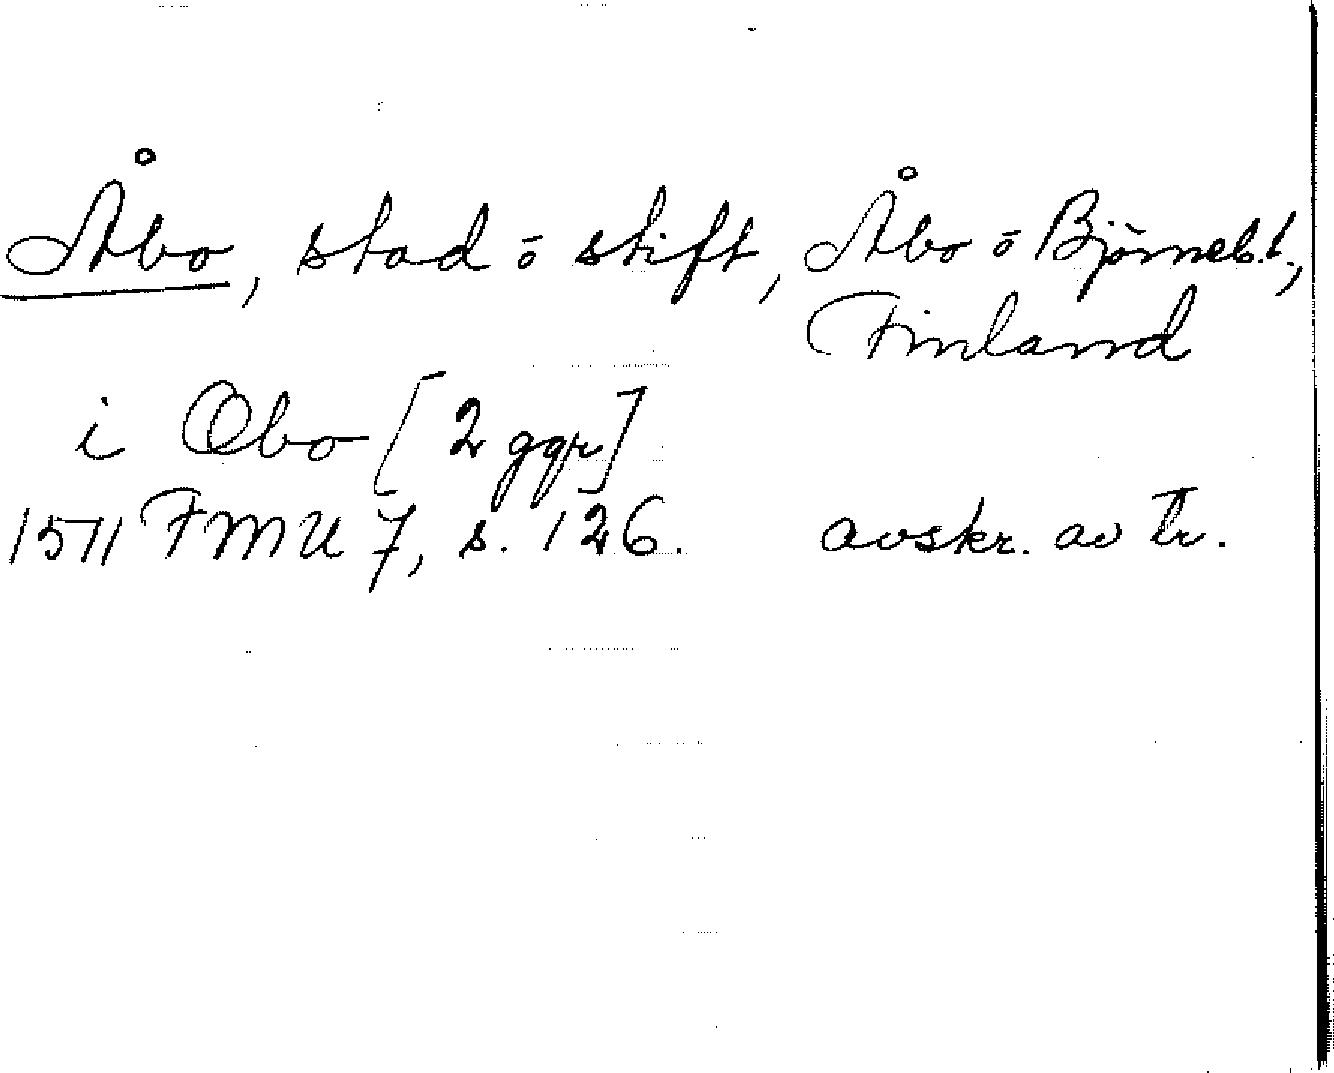 Åbo, stad ō stift, Åbo ō Björneb.l.,
Finland
i Obo [2 ggr]
1511 FMU 7, s. 126. avskr. av tr.